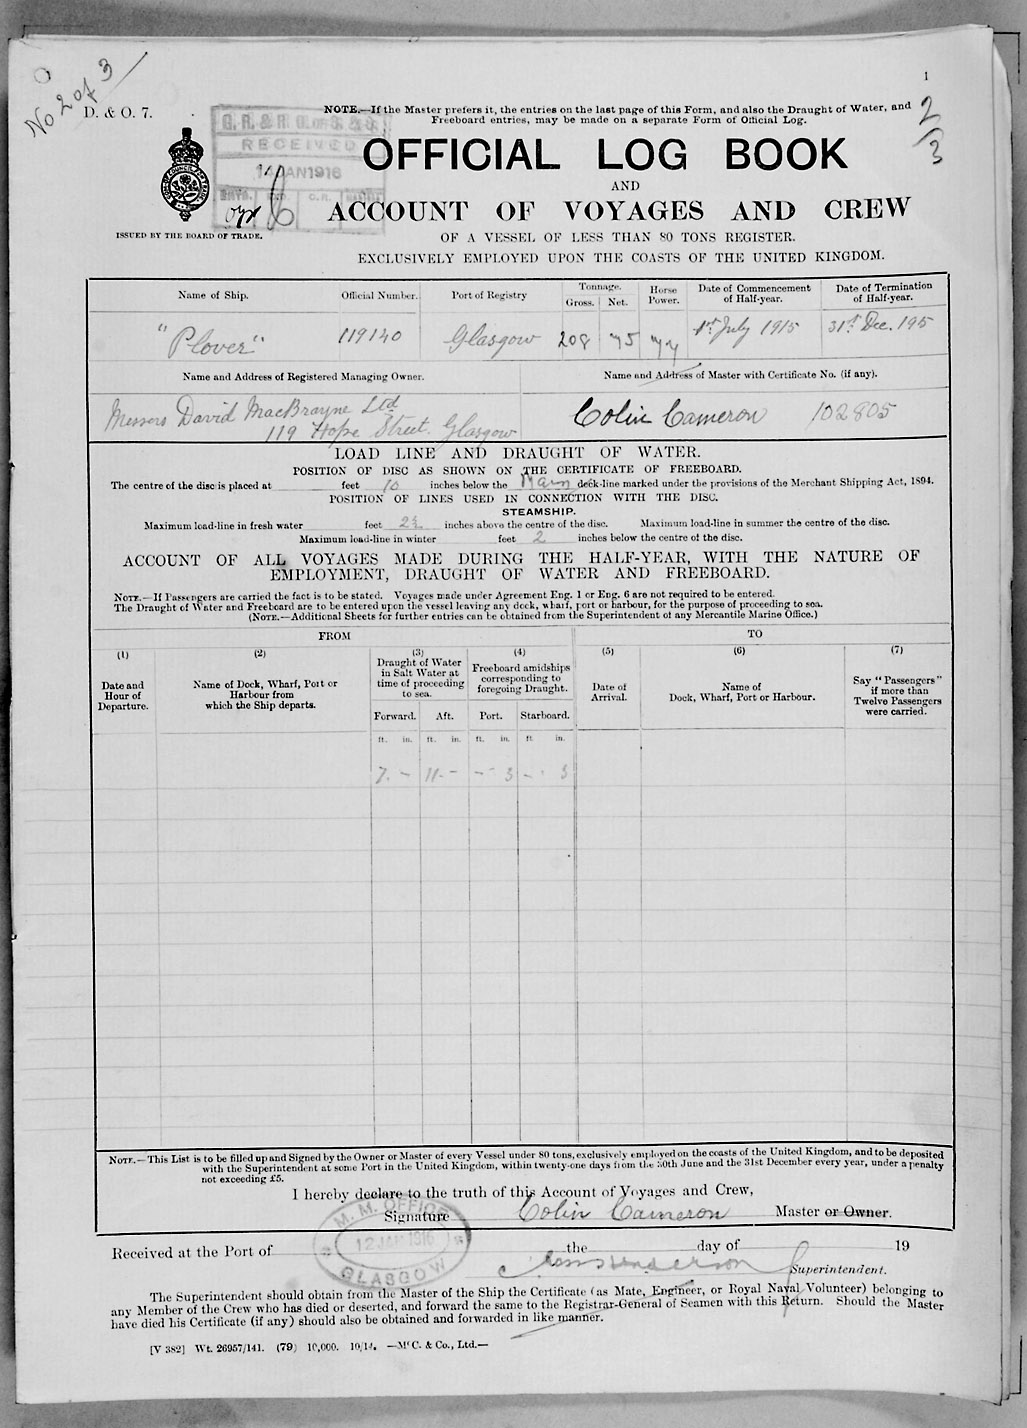 No 2 of 3
1
D. & O. 7.
2/3
NOTE.—If the Master prefers it, the entries on the last page of this Form, and also the Draught of Water, and
Freeboard entries, may be made on a separate Form of Official Log.
G. R. & R G. OF S. & S.
RECEIVED
14 JAN 1916
OFFICIAL LOG BOOK
AND
ACCOUNT OF VOYAGES AND CREW
ISSUED BY THE BOARD OF TRADE.
OF A VESSEL OF LESS THAN 80 TONS REGISTER.
EXCLUSIVELY EMPLOYED UPON THE COASTS OF THE UNITED KINGDOM.
Name of Ship. Official Number. Port of Registry Tonnage. Gross. Net. Horse Power. Date of Commencement of Half-year. Date of Termination of Half-year.
"Plover" 119140 Glasgow 208 75 74 1st July 1915 31st Dec. 195
Name and Address of Registered Managing Owner. Name and Address of Master with Certificate No. (if any).
Messers David MacBrayne Ltd Colin Cameron 102805
119 Hope Street. Glasgow
LOAD LINE AND DRAUGHT OF WATER.
POSITION OF DISC AS SHOWN ON THE CERTIFICATE OF FREEBOARD.
The centre of the disc is placed at feet 10 inches below the Main deck-line marked under the provisions of the Merchant Shipping Act, 1894.
POSITION OF LINES USED IN CONNECTION WITH THE DISC.
STEAMSHIP.
Maximum load-line in fresh water feet 2½ inches above the centre of the disc. Maximum load-line in summer the centre of the disc.
Maximum load-line in winter feet 2 inches below the centre of the disc.
ACCOUNT OF ALL VOYAGES MADE DURING THE HALF-YEAR, WITH THE NATURE OF
EMPLOYMENT, DRAUGHT OF WATER AND FREEBOARD.
NOTE.—If Passengers are carried the fact is to be stated. Voyages made under Agreement Eng. 1 or Eng. 6 are not required to be entered.
The Draught of Water and Freeboard are to be entered upon the vessel leaving any dock, wharf, port or harbour, for the purpose of proceeding to sea.
(NOTE.—Additional Sheets for further entries can be obtained from the Superintendent of any Mercantile Marine Office.)
FROM TO
(1) (2) (3) (4) (5) (6) (7)
Date and Hour of Departure.
Name of Dock, Wharf, Port or Harbour from which the Ship departs.
Draught of Water in Salt Water at time of proceeding to sea.
Freeboard amidships corresponding to foregoing Draught.
Date of Arrival.
Name of Dock, Wharf, Port or Harbour.
Say "Passengers" if more than Twelve Passengers were carried.
Forward. Aft. Port. Starboard.
ft. in. ft. in. ft. in. ft. in.
7. - 11 - - 3 - 3
NOTE.—This List is to be filled up and Signed by the Owner or Master of every Vessel under 80 tons, exclusively employed on the coasts of the United Kingdom, and to be deposited
with the Superintendent at some Port in the United Kingdom, within twenty-one days from the 30th June and the 31st December every year, under a penalty
not exceeding £5.
I hereby declare to the truth of this Account of Voyages and Crew,
Signature Colin Cameron Master or Owner.
M. M. OFFICE
12 JAN 1916
GLASGOW
Received at the Port of the day of 19
Superintendent.
The Superintendent should obtain from the Master of the Ship the Certificate (as Mate, Engineer, or Royal Naval Volunteer) belonging to
any Member of the Crew who has died or deserted, and forward the same to the Registrar-General of Seamen with this Return. Should the Master
have died his Certificate (if any) should also be obtained and forwarded in like manner.
[V 382] Wt. 26957/141. (79) 10,000. 10/14. —McC. & Co., Ltd.—